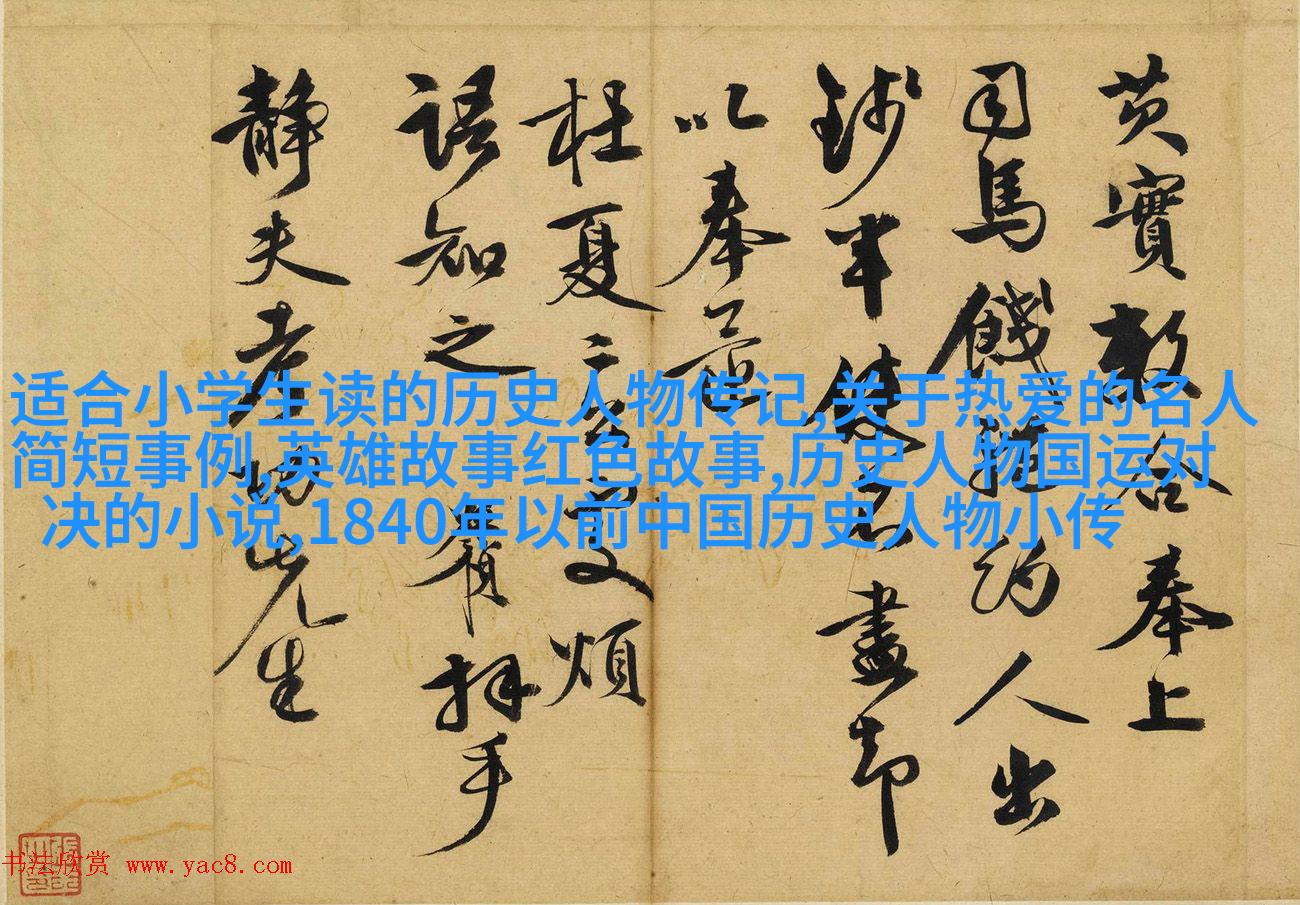 芡實數合奉上
司馬餞約人出
錢半盡却
以奉
枉夏二煩
語知之拜手
靜夫老先生
适合小学生读的历史人物传记,关于热爱的名人
简短事例,英雄故事红色故事,历史人物国运对
决的小说,1840年以前中国历史人物小传
书法欣赏 www.yac8.com